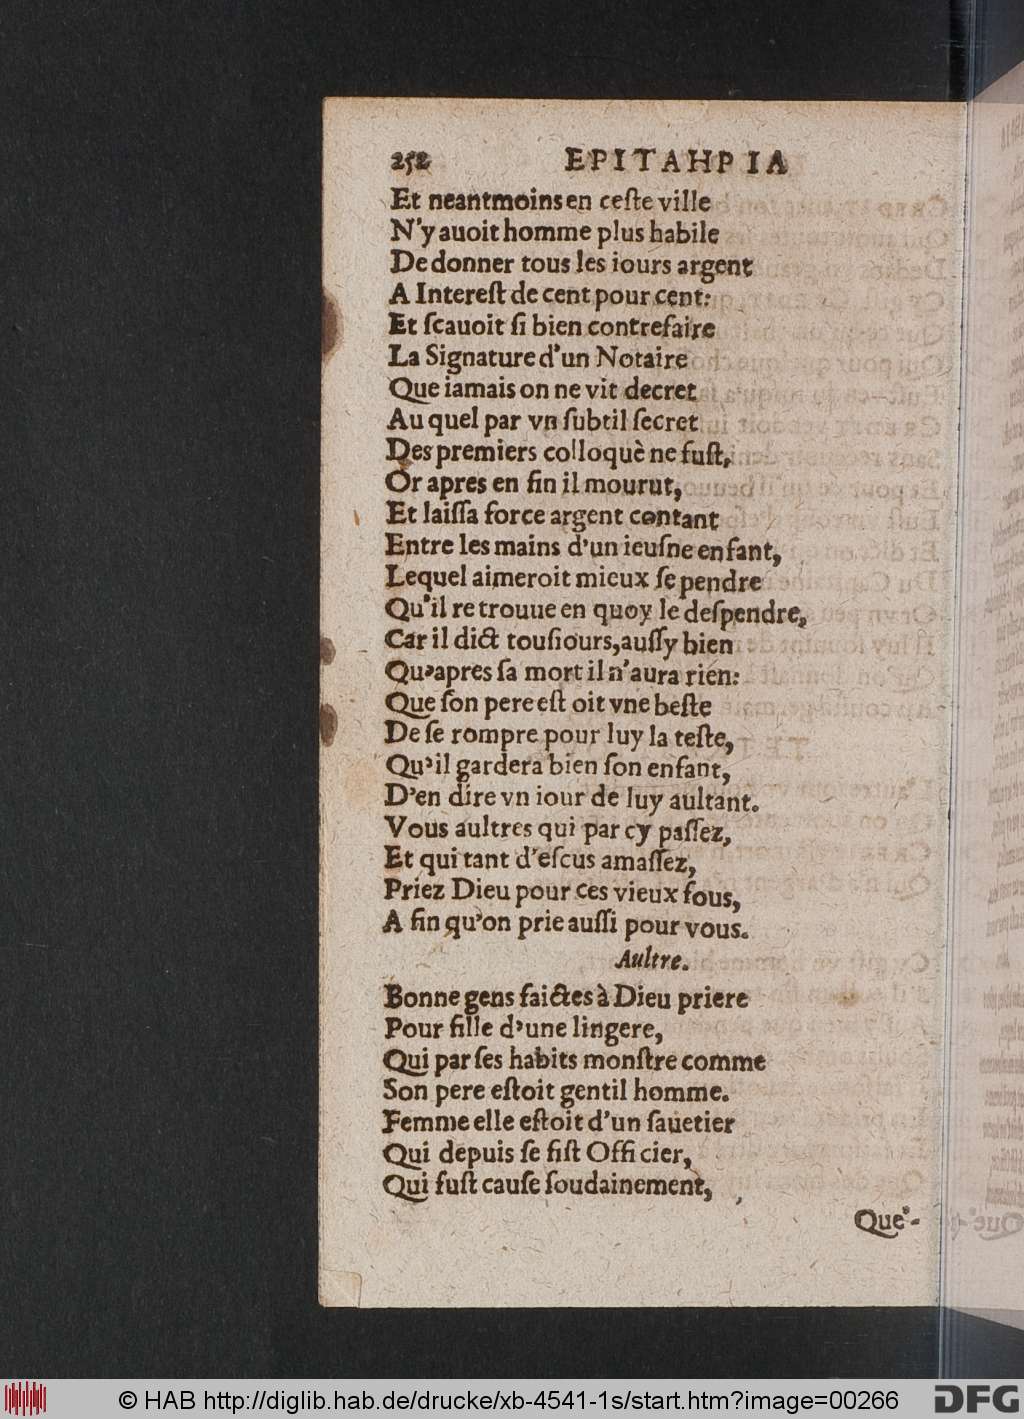 252 EPITAHPIA
Et neantmoins en ceſte ville
N'y auoit homme plus habile
De donner tous les iours argent
A Intereſt de cent pour cent:
Et ſcauoit ſi bien contrefaire
La Signature d'un Notaire
Que iamais on ne vit decret
Au quel par vn ſubtil ſecret
Des premiers colloquè ne fuſt,
Or apres en fin il mourut,
Et laiſſa force argent contant
Entre les mains d'un ieuſne enfant,
Lequel aimeroit mieux ſe pendre
Qu'il retrouue en quoy le deſpendre,
Car il dict touſiours, auſſy bien
Qu'apres ſa mort il n'aura rien:
Que ſon pere eſt oit vne beſte
De ſe rompre pour luy la teſte,
Qu'il gardera bien ſon enfant,
D'en dire vn iour de luy aultant.
Vous aultres qui par cy paſſez,
Et qui tant d'eſcus amaſſez,
Priez Dieu pour ces vieux fous,
A fin qu'on prie auſſi pour vous.
Aultre.
Bonne gens faictes à Dieu priere
Pour fille d'une lingere,
Qui par ſes habits monſtre comme
Son pere eſtoit gentil homme.
Femme elle eſtoit d'un ſauetier
Qui depuis ſe fiſt Officier,
Qui fuſt cauſe ſoudainement,
Que'-
© HAB http://diglib.hab.de/drucke/xb-4541-1s/start.htm?image=00266
DFG